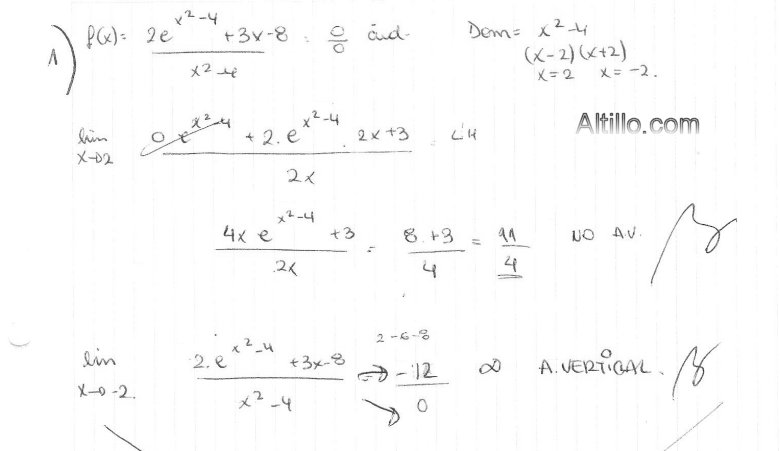 1) f(x) = (2e^(x²-4) + 3x - 8) / (x² - 4) = 0/0 ind. Dom = x² - 4
(x-2)(x+2)
x=2 x=-2.
Altillo.com
lim x→2 (0 e^(x²-4) + 2. e^(x²-4) . 2x + 3) / 2x = L'H
(4x e^(x²-4) + 3) / 2x = (8 + 3) / 4 = 11/4 NO A.V.
2-6-8
lim x→-2. (2. e^(x²-4) + 3x - 8) / (x² - 4) → -12 / 0 ∞ A. VERTICAL.